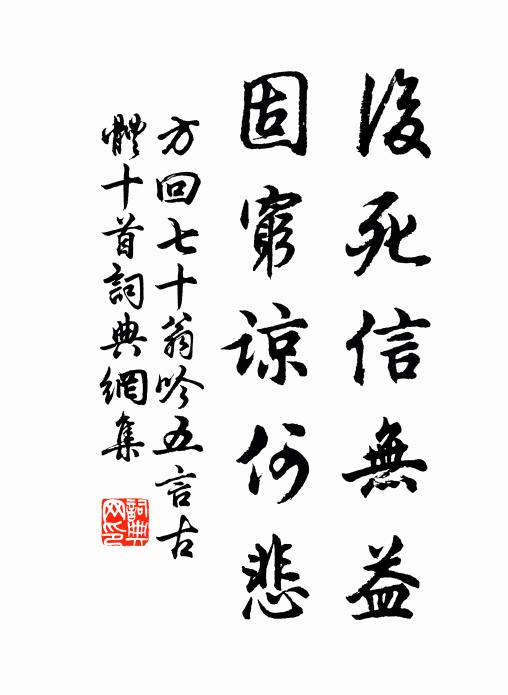 後死信無益
固窮諒何悲
方回七十翁吟五言古
體十首詞典網集
詞典
网印